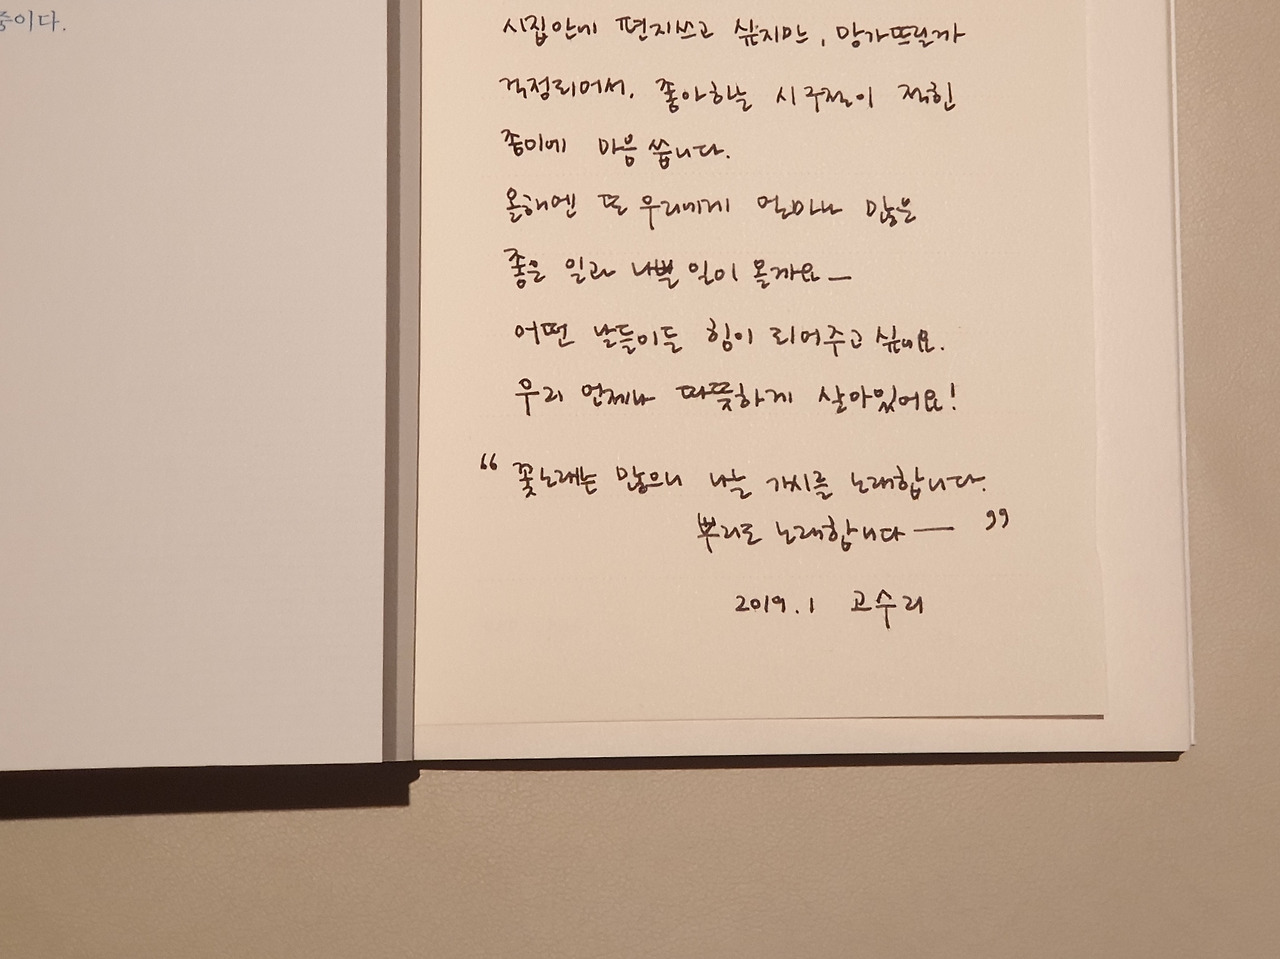 중이다.
시집안에 편지쓰고 싶지만, 망가뜨릴까
걱정되어서, 좋아하는 시 구절이 적힌
종이에 마음 씁니다.
올해엔 또 우리에게 얼마나 많은
좋은 일과 나쁠 일이 올까요—
어떤 날들이든 힘이 되어주고 싶네요.
우리 언제나 따뜻하게 살아있어요!
“꽃노래는 많으니 나는 가시를 노래합니다.
뿌리로 노래합니다—”
2019.1 고수리